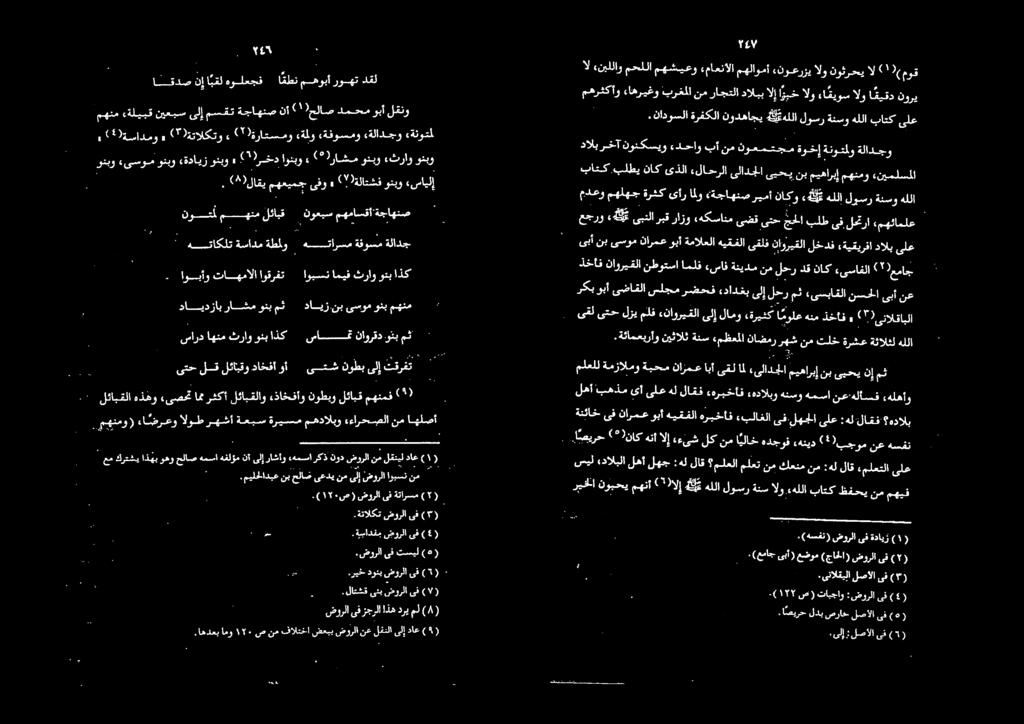 ٢٤٦
لقد تهور أبوهم نطقًا فجعلوه لقبًا إن صدقا
ونقل أبو محمد صالح(١) أن صنهاجة تقسم إلى سبعين قبيلة، منهم
لمتونة، وجدالة، ومسوفة، ولمة، ومستارة(٢)، وتكلاتة(٣)، ومداسة(٤)،
وبنو وارث، وبنو مشار(٥)، وبنوا دخر(٦)، وبنو زيادة، وبنو موسى، وبنو
إلياس، وبنو فشتالة(٧)، وفى جميعهم يقال(٨).
صنهاجة أقسامهم سبعون قبائل منهم لمتون
جدالة مسوفة مسراته ولمطة مداسة تلكاته
كذا بنو وارث فيما نسبوا تفرقوا الامهات وأبوا
منهم بنو موسى بن زياد ثم بنو مشار بازدياد
ثم بنو دقروان تماس كذا بنو وارث منها دراس
تفرقت إلى بطون شتى أو أفخاد وقبائل قل حتى
(٩) فمنهم قبائل وبطون وأفخاذ، والقبائل أكثر مما تحصى، وهذه القبائل
أصلها من الصحراء، وبلادهم مسيرة سبعة أشهر طولاً وعرضًا، (ومنهم
(١) عاد لينقل من الروض دون ذكر اسمه، وأشار إلى أن مؤلفه اسمه صالح وهو بهذا يشترك مع
من نسبوا الروض إلى من يدعى صالح بن عبدالحليم.
(٢) مسراتة فى الروض (ص١٢٠).
(٣) فى الروض تكلاتة.
(٤) فى الروض مفداسة.
(٥) ليست فى الروض.
(٦) فى الروض بنود خير.
(٧) فى الروض بنى قشتال.
(٨) لم يرد هذا الرجز فى الروض
(٩) عاد إلى النقل عن الروض ببعض اختلاف من ص ١٢٠ وما بعدها.
٢٤٧
قوم)(١) لا يحرثون ولا يزرعون، أموالهم الأنعام، وعيشهم اللحم واللبن، لا
يرون دقيقًا ولا سويقًا، ولا خبزًا إلا ببلاد التجار من المغرب وغيرها، وأكثرهم
على كتاب الله وسنة رسول الله ﷺ يجاهدون الكفرة السودان.
وجدالة ولمتونة إخوة مجتمعون من أب واحد، ويسكنون آخر بلاد
المسلمين، ومنهم إبراهيم بن يحيى الجدالى الرحال، الذى كان يطلب كتاب
الله وسنة رسول الله ﷺ، وكان أمير صنهاجة، ولما رأى كثرة جهلهم وعدم
علمائهم، ارتحل فى طلب الحج حتى قضى مناسكه، وزار قبر النبى ﷺ، ورجع
على بلاد افريقية، فدخل القيروان فلقى الفقيه العلامة أبو عمران موسى بن أبى
جامع(٢) الفاسى، كان قد رحل من مدينة فاس، فلما استوطن القيروان فأخذ
عن أبى الحسن القابسى، ثم رحل إلى بغداد، فحضر مجلس القاضى أبو بكر
الباقلانى(٣)، فأخذ منه علومًا كثيرة، ومال إلى القيروان، فلم يزل حتى لقى
الله لثلاثة عشرة خلت من شهر رمضان المعظم، سنة ثلاثين وأربعمائة.
ثم إن يحيى بن إبراهيم الجدالى، لما لقى أبا عمران محبة وملازمة للعلم
وأهله، فسأله عن اسمه وسنه وبلاده، فأخبره، فقال له على أى مذهب أهل
بلاده؟ فقال له: على الجهل فى الغالب، فأخبره الفقيه أبو عمران فى خائنة
نفسه عن موجب(٤) دينه، فوجده خاليًا من كل شىء، إلا أنه كان(٥) حريصًا
على التعلم، قال له: من منعك من تعلم العلم؟ قال له: جهل أهل البلاد، ليس
فيهم من يحفظ كتاب الله، ولا سنة رسول الله ﷺ إلا(٦) أنهم يحبون الخير
(١) زيادة فى الروض (نفسه).
(٢) فى الروض (الحاج) موضع (أبى جامع).
(٣) فى الأصل البقلانى.
(٤) فى الروض: واجبات (ص ١٢٢).
(٥) فى الأصل حارص بدل حريصًا.
(٦) فى الأصل: إلى.